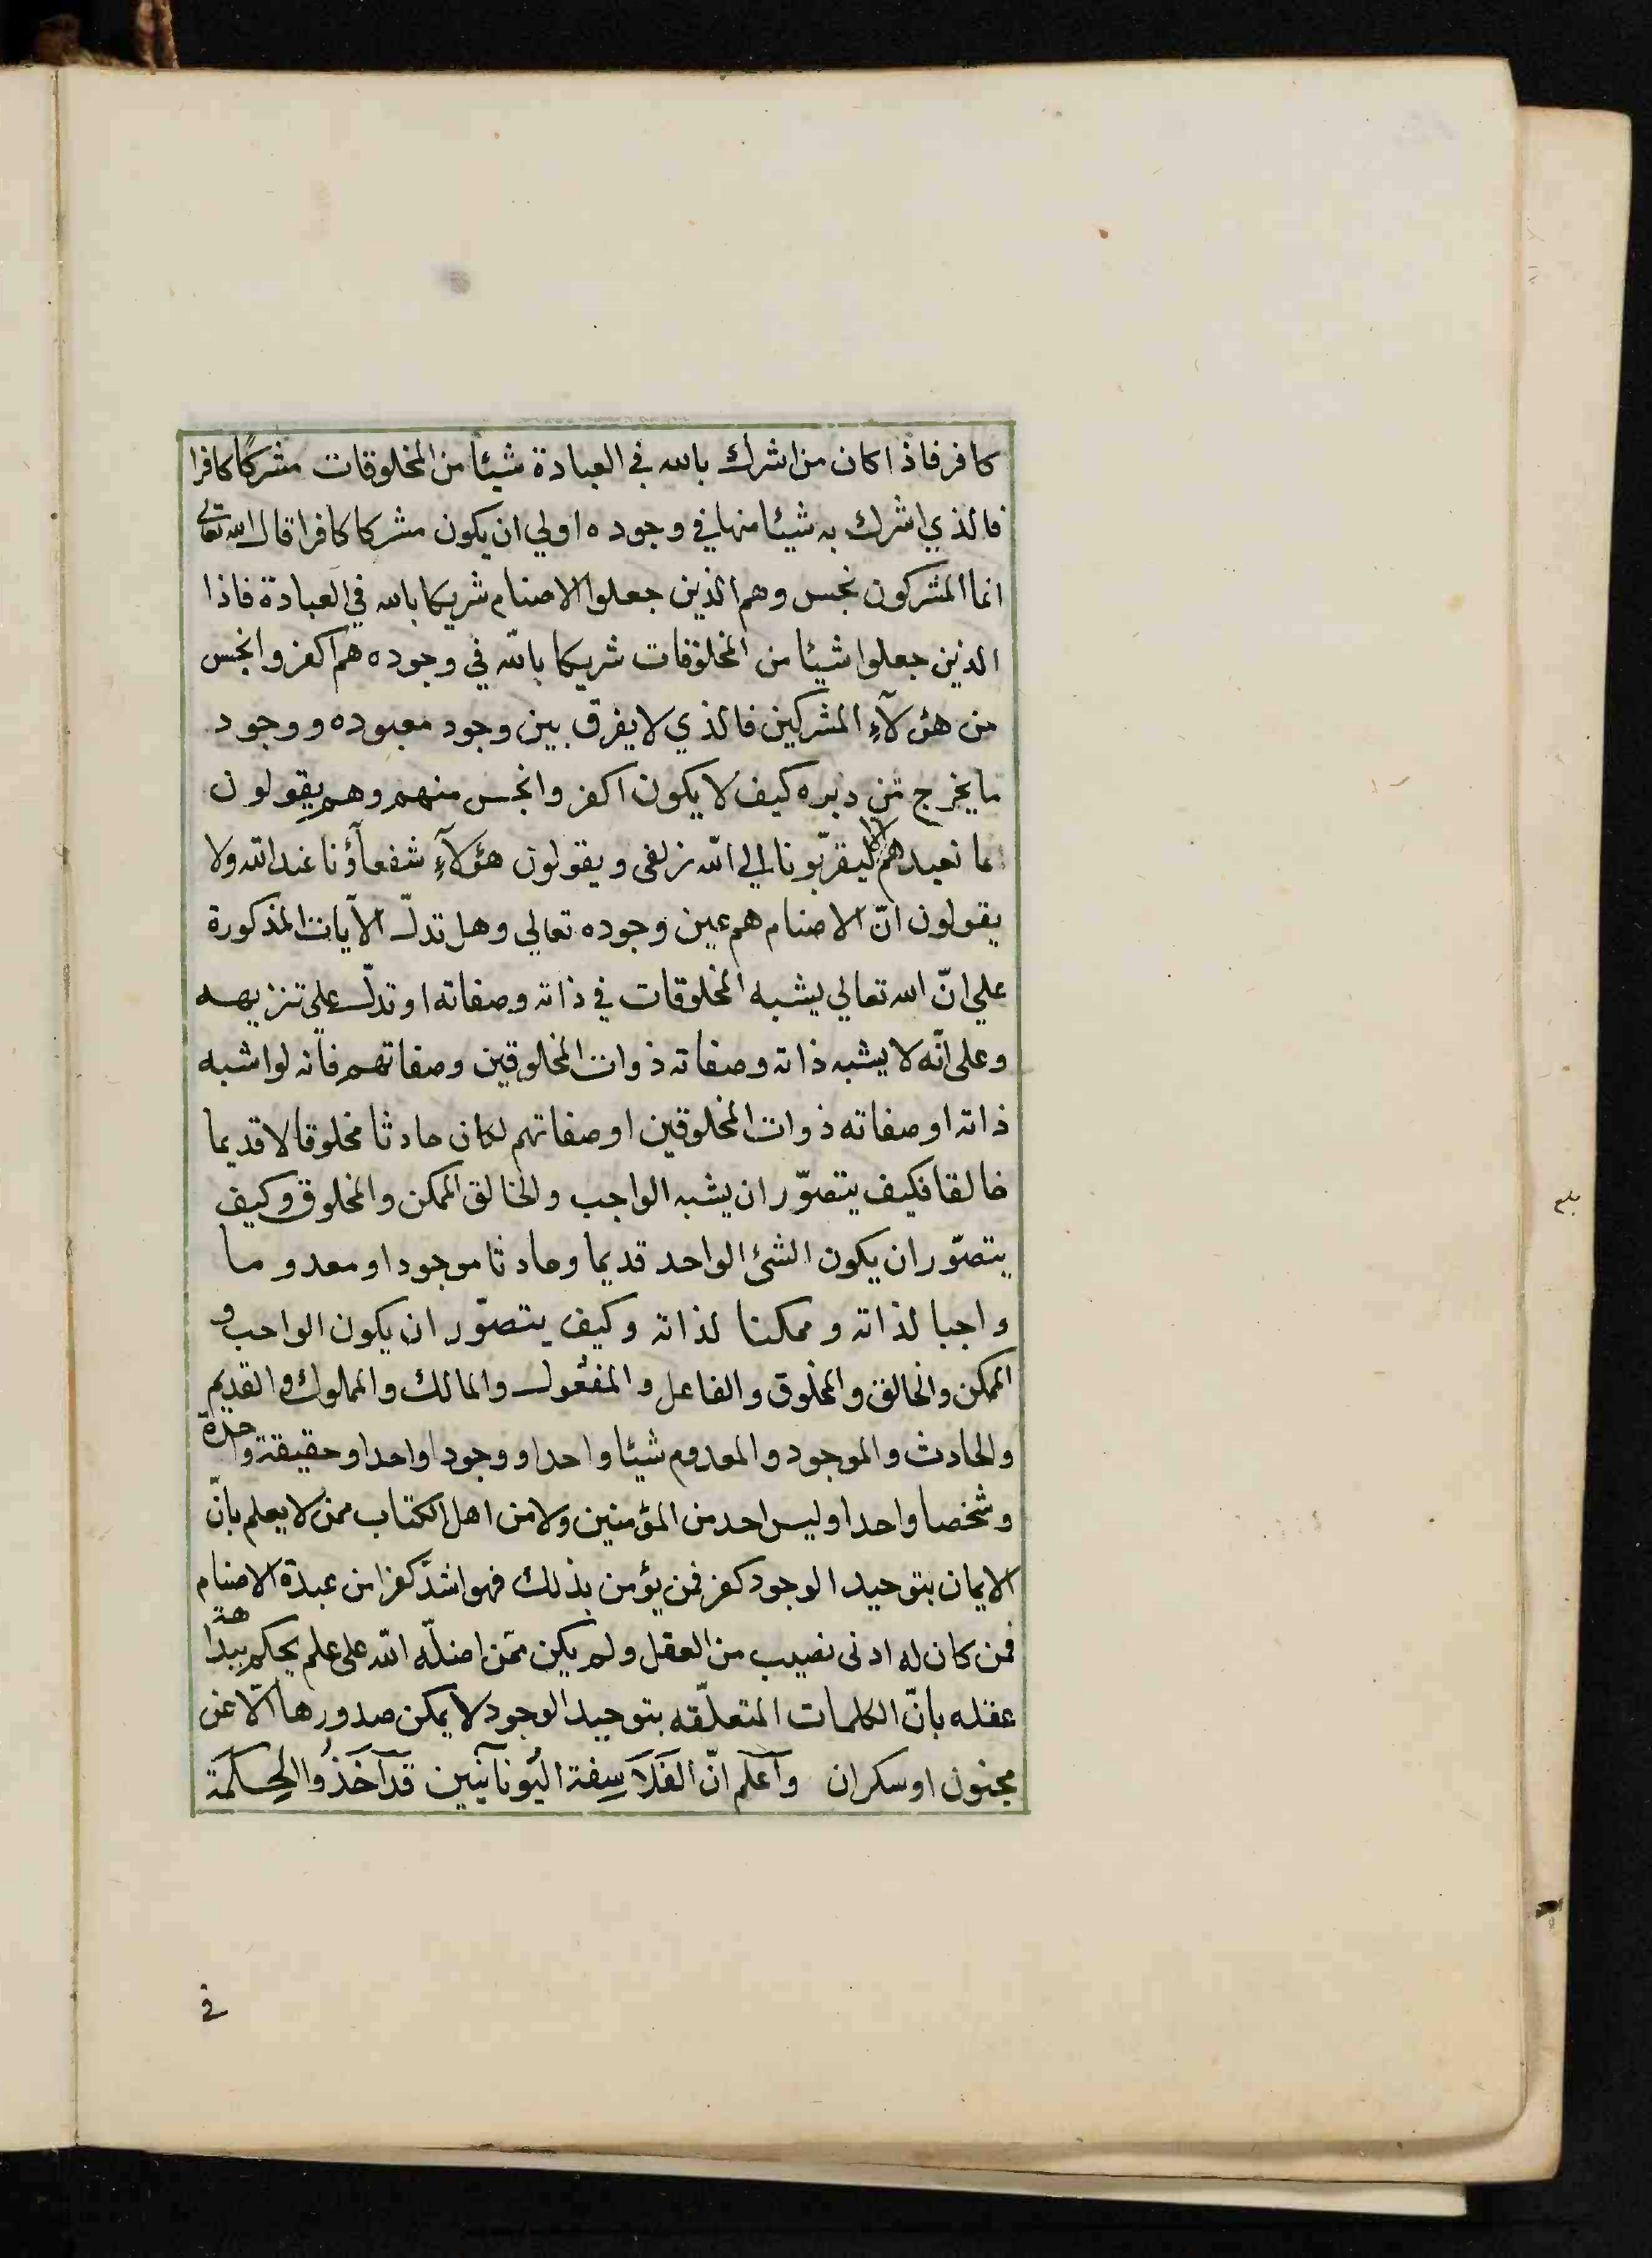 كافر فاذا كان من اشرك بالله في العبادة شيئا من المخلوقات مشركًا كافرا
فالذي اشرك به شيئا منها في وجوده اولي ان يكون مشركا كافرا قال الله تعالى
انما المشركون نجس وهم الذين جعلوا الاصنام شريكا بالله في العبادة فاذا
الذين جعلوا شيئا من المخلوقات شريكا بالله في وجوده هم اكفر وانجس
من هؤلآء المشركين فالذي لا يفرق بين وجود معبوده ووجود
ما يخرج من دبره كيف لا يكون اكفر وانجس منهم وهم يقولون
ما نعبدهم الا ليقرّبونا الي الله زلفى ويقولون هؤلآء شفعآؤنا عند الله ولا
يقولون انّ الاصنام هم عين وجوده تعالي وهل تدلّ الآيات المذكورة
علي انّ الله تعالي يشبه المخلوقات في ذاته وصفاته او تدلّ علي تنزيهه
وعلى انّه لا يشبه ذاته وصفاته ذوات المخلوقين وصفاتهم فانه لو اشبه
ذاته او صفاته ذوات المخلوقين او صفاتهم لكان حادثا مخلوقا لا قديما
خالقا فكيف يتصوّر ان يشبه الواجب والخالق الممكن والمخلوق وكيف
يتصوّر ان يكون الشئ الواحد قديما وحادثا موجودا ومعدوما
واجبا لذاته وممكنا لذاته وكيف يتصوّر ان يكون الواجب و
الممكن والخالق والمخلوق والفاعل والمفعول والمالك والمملوك والقديم
والحادث والموجود والمعدوم شيئا واحدا ووجودا واحدا وحقيقة واحدة
وشخصا واحدا وليس احد من المؤمنين ولا من اهل الكتاب ممن لا يعلم بانّ
الايمان بتوحيد الوجود كفر فمن يؤمن بذلك فهو اشدّ كفرا من عبدة الاصنام
فمن كان له ادنى نصيب من العقل ولم يكن ممّن اضلّه الله على علم يحكم ببداهة
عقله بانّ الكلمات المتعلّقه بتوحيد الوجود لا يمكن صدورها الّا عن
مجنون او سكران وآعلم انّ الفَلَاسِفة اليُونآنيين قد آخَذُوا الحِكمَة
في